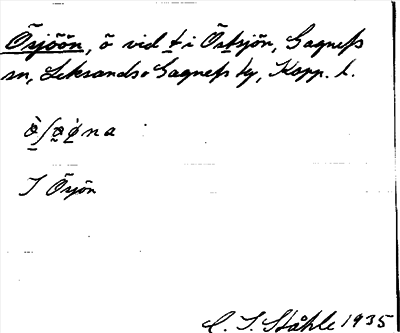 Ösjöön, ö vid t i Östsjön, Gagnefs
sn, Leksands o Gagnefs tg, Kopp. l.
I Ösjön
C. I. Ståhle 1935